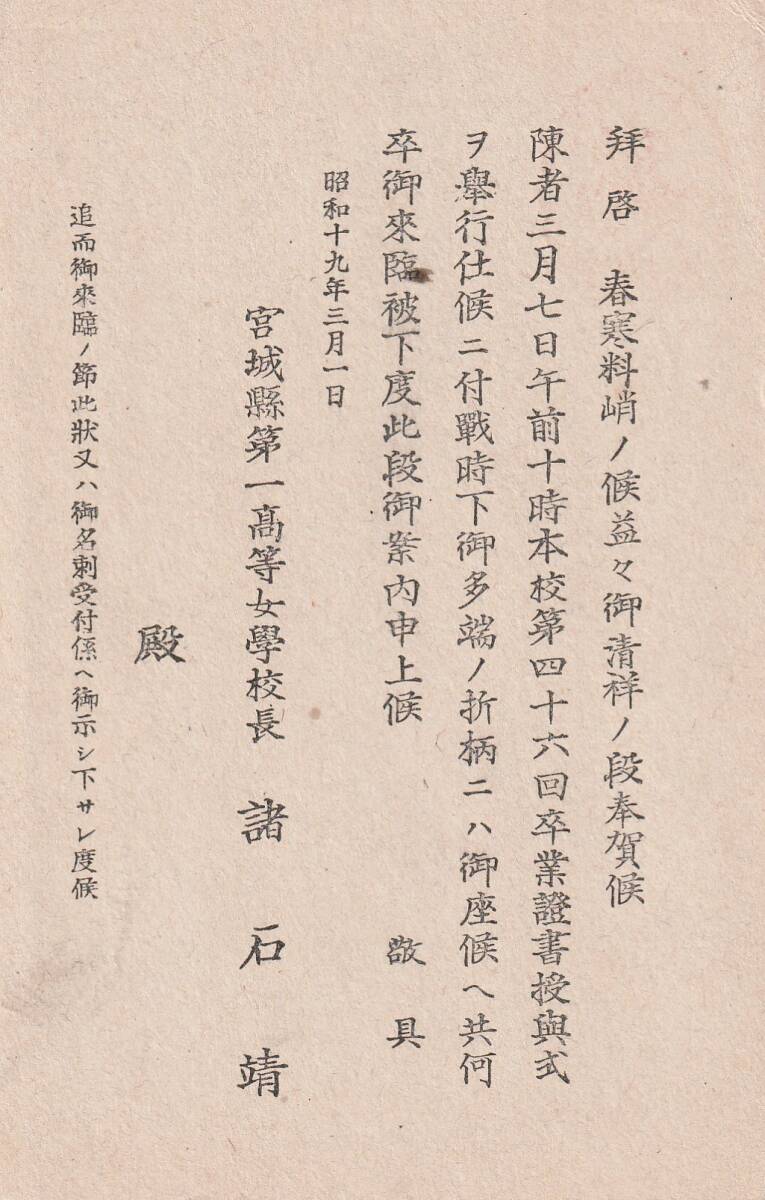 拜啓 春寒料峭ノ候益々御清祥ノ段奉賀候
陳者三月七日午前十時本校第四十六回卒業證書授與式
ヲ擧行仕候ニ付戰時下御多端ノ折柄ニハ御座候ヘ共何
卒御來臨被下度此段御案内申上候 敬具
昭和十九年三月一日
宮城縣第一高等女學校長 諸石靖
殿
追而御來臨ノ節此狀又ハ御名刺受付係ヘ御示シ下サレ度候